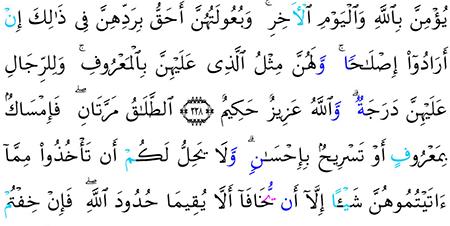 يُؤْمِنَّ بِٱللَّهِ وَٱلْيَوْمِ ٱلْأَخِرِ ۚ وَبُعُولَتُهُنَّ أَحَقُّ بِرَدِّهِنَّ فِى ذَٰلِكَ إِنْ
أَرَادُوٓا۟ إِصْلَـٰحًا ۚ وَلَهُنَّ مِثْلُ ٱلَّذِى عَلَيْهِنَّ بِٱلْمَعْرُوفِ ۚ وَلِلرِّجَالِ
عَلَيْهِنَّ دَرَجَةٌ ۗ وَٱللَّهُ عَزِيزٌ حَكِيمٌ ﴿٢٢٨﴾ ٱلطَّلَـٰقُ مَرَّتَانِ ۖ فَإِمْسَاكٌۢ
بِمَعْرُوفٍ أَوْ تَسْرِيحٌۢ بِإِحْسَـٰنٍ ۗ وَلَا يَحِلُّ لَكُمْ أَن تَأْخُذُوا۟ مِمَّآ
ءَاتَيْتُمُوهُنَّ شَيْـًٔا إِلَّآ أَن يَخَافَآ أَلَّا يُقِيمَا حُدُودَ ٱللَّهِ ۖ فَإِنْ خِفْتُمْ